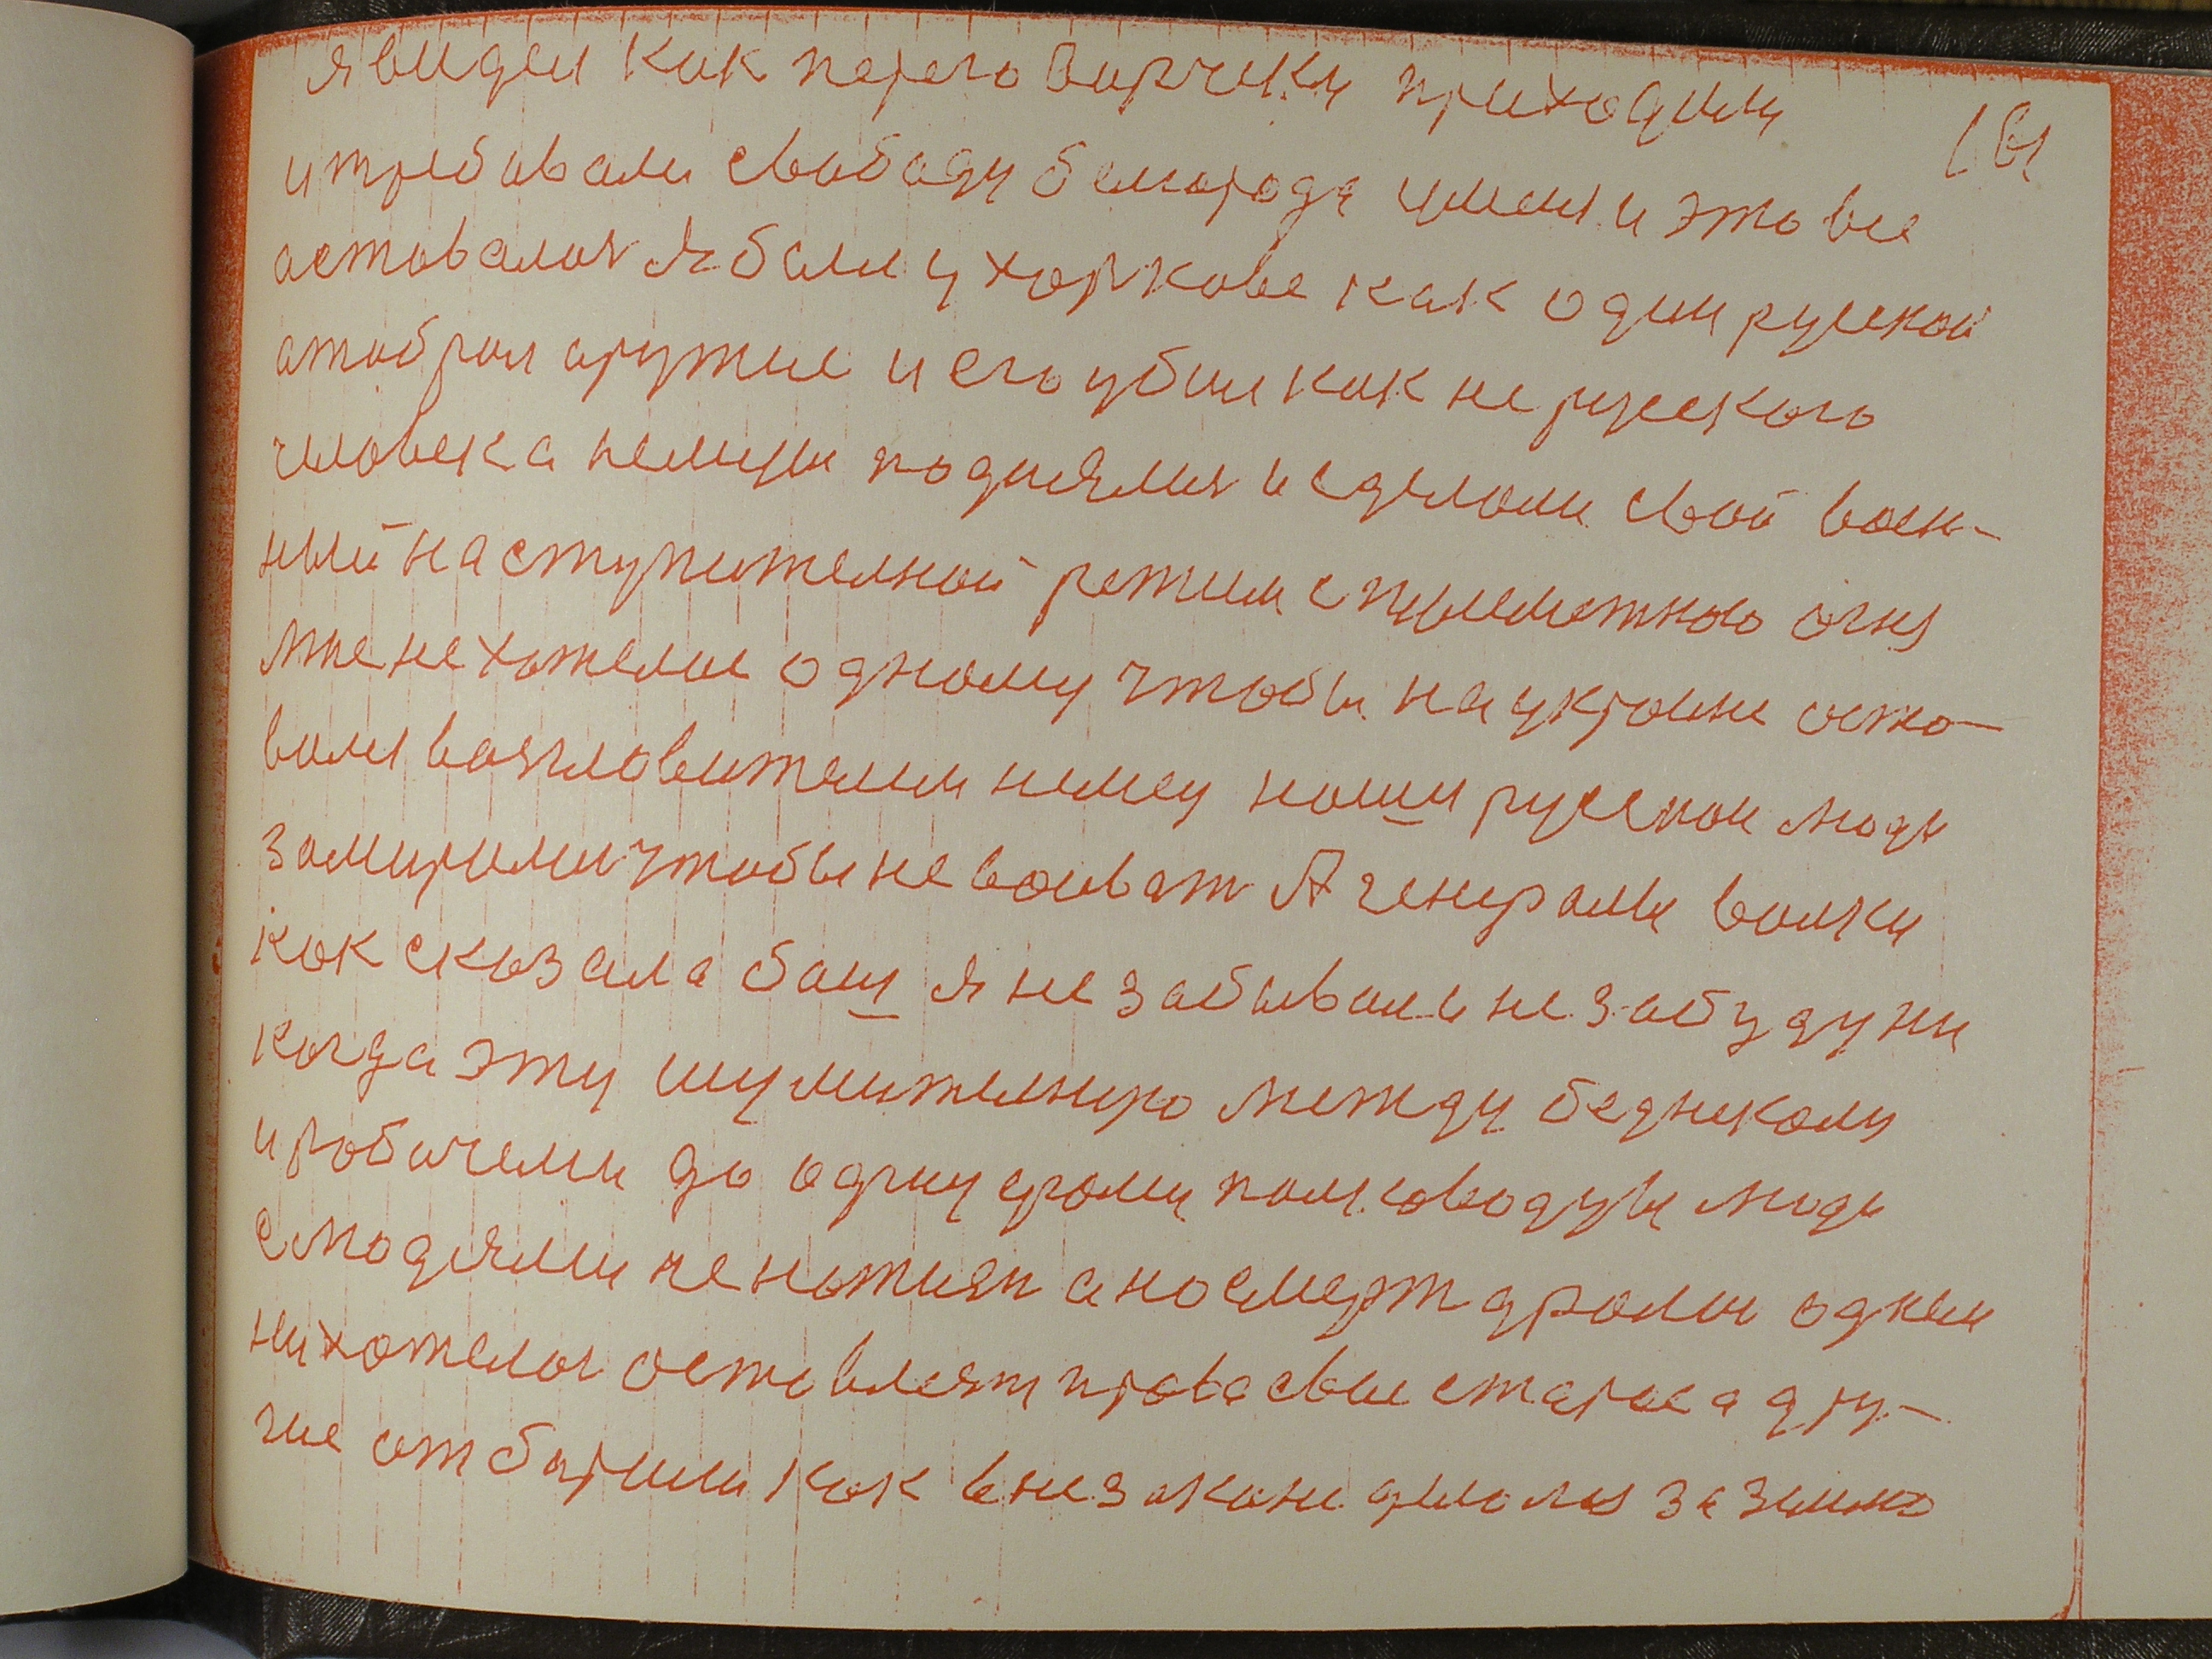 я видел как переговорчики приходили
и требавали свабоду белгорода имели и это все
аставалос я был у харкове как один руской
атобрал аружие и его убили как не руского
человека немцы поднялис и сделали свой воен-
ный наступителной режим с пулеметнаю огня
мне не хотелос одному чтобы на украине оста-
вался немец наши руской люди
замирилис чтобы не воеват А генералы волки
как сказала я не забывал и не забуду ни
когда эту между бедникому
и рабочеми до одну драли люди
с людями не на жизн а на смерт драли одним
ни хотелос оставлят права свои старое а дру-
гие отбарили как в незакони делолы за землю